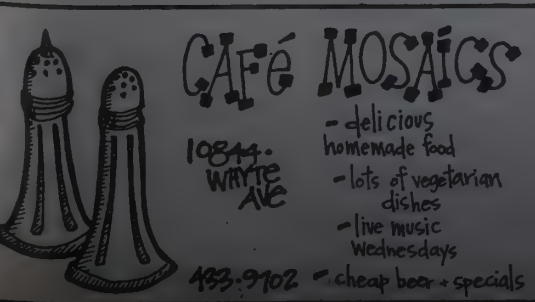 CAFé MOSAiCS
10844.
WHYTE
AVe
433.9702
- delicious
homemade food
- lots of vegetarian
dishes
- live music
Wednesdays
- cheap beer + specials